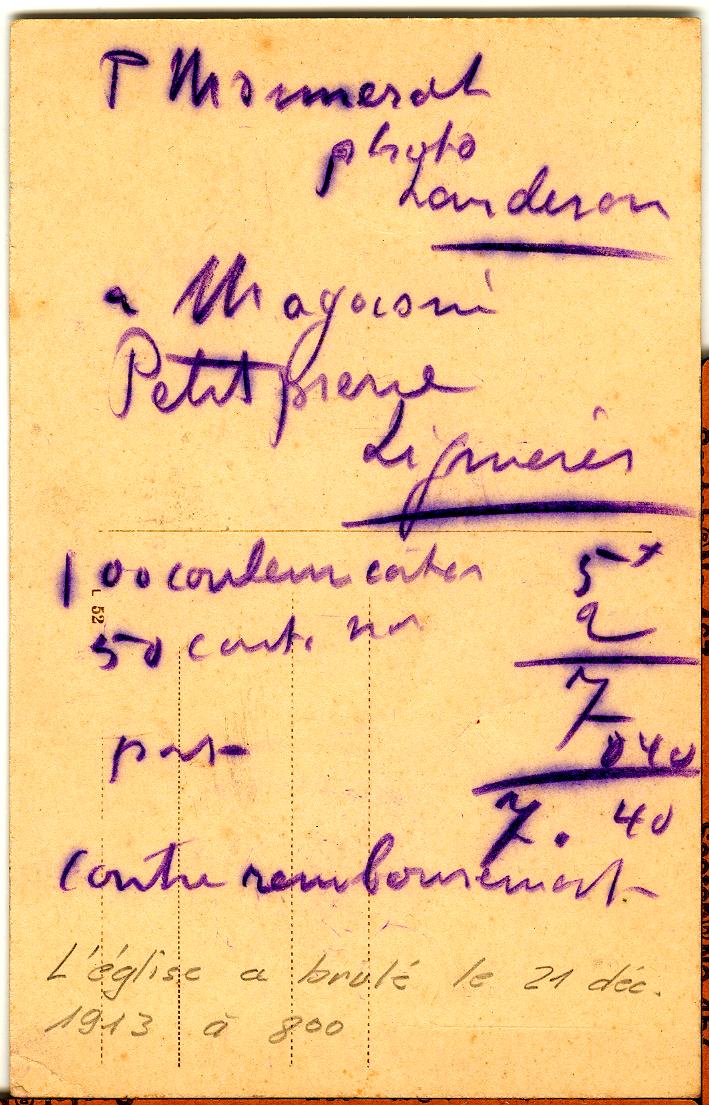 P Monnerat
photo
Landeron
a Magasin
Petitpierre
Lignières
100 couleur cartes 5
L 52
50 carte noir 2
7
port 0 40
7. 40
contre remboursement
L'église a brulé le 21 déc.
1913 à 800